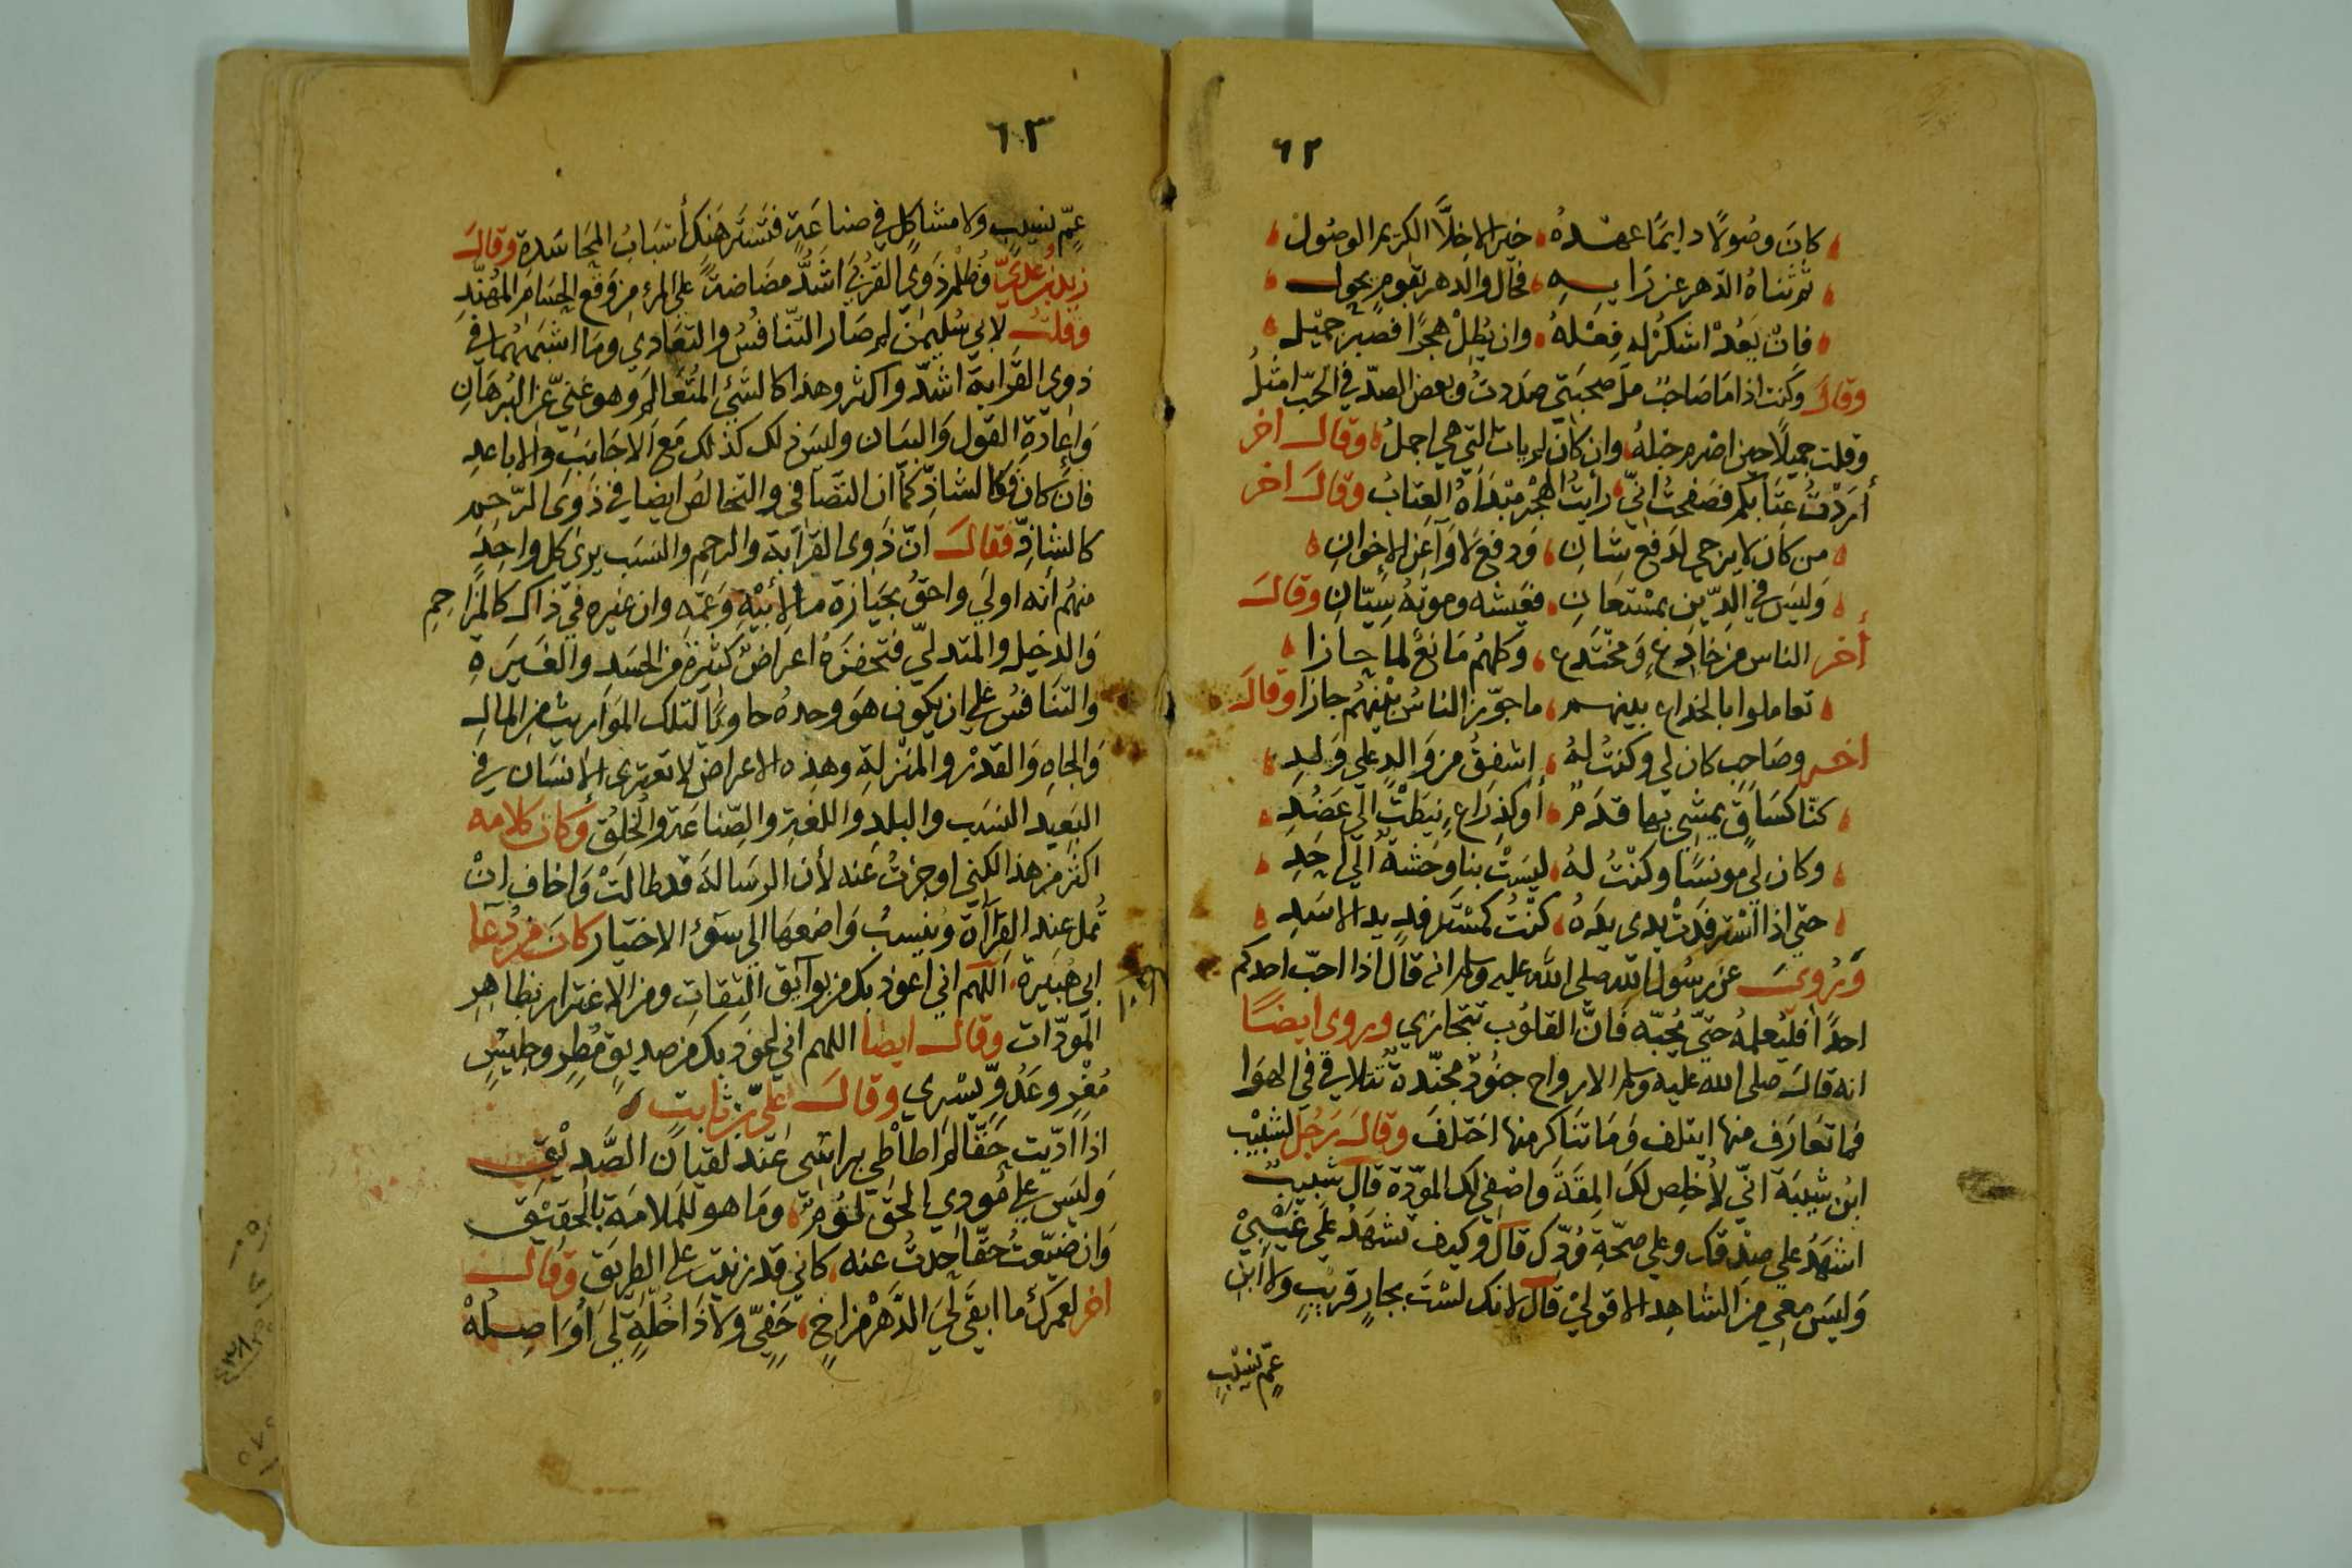 ٦٢
كان وصولا دايما عهده خير الاخلا الكريم الوصول
ثم ثناه الدهر عن رايه فحال والدهر بقوم يحول
فان يعد اشكر له فعله وان يطل هجرا فصبر جميل
وقال وكنت اذا ما صاحب مل صحبتي صددت وبعض الصد في الحب امثل
وقلت جميلا حين اصرم حبله وان كان لم يات التي هي اجمل وقال اخر
أردت عتابكم فصفحت اني رأيت الهجر مبتداه العتاب وقال اخر
من كان لا يرجى لدفع شان ودفع لاوآ عن الاخوان
وليس في الدين بمستعان فعيشه وموته سيان وقال
أخر الناس من خادع ومختدع وكلهم مانع لما حازا
تعاملوا بالخداع بينهم ما جوز الناس بينهم جازا وقال
اخر وصاحب كان لي وكنت له اشفق من والد علي ولد
كنا كساق يمشي بها قدم أو كذراع نيطت الي عضد
وكان لي مونسا وكنت له ليست بنا وحشة الي احد
حتي اذا استرفدت يدي يده كنت كمسترفد يد الاسد
وروى عن رسول الله صلى الله عليه وسلم انه قال اذا احب احدكم
احدا فليعلمه حتي يحبه فان القلوب تتجازي وروى ايضا
انه قال صلى الله عليه وسلم الارواح جنود مجندة تتلاقي في الهوا
فما تعارف منها ايتلف وما تناكر منها اختلف وقال رجل لشبيب
ابن شيبة اني لأخلص لك المقة واصفي لك المودة قال شبيب
اشهد علي صدقك وعلي صحة ودك قال وكيف تشهد علي غيبي
وليس معي من الشاهد الا قولي قال لانك لست بجار قريب ولا ابن
عم نسيب
٦٣
عم نسيب ولا مشاكل في صناعة فتستر هنك أسباب المحاسدة وقال
زيد بن عدي وظلم ذوي القربي اشد مضاضة علي المرء من وقع الحسام المهند
وقلت لابي سليمن لم صار التنافس والتعادي وما اشبههما في
ذوي القرابة اشد واكثر وهذا كالشئ المتعالم وهو غني عن البرهان
واعادة القول والبيان وليس ذلك كذلك مع الاجانب والاباعد
فان كان فكالشاذ كما ان التصافي والتخالص ايضا في ذوي الرحم
كالشاذ فقال ان ذوي القرابة والرحم والنسب يرى كل واحد
منهم أنه اولي واحق بحيازة مال أبيه وعمه وان غيره في ذاك كالمزاحم
والدخيل والمتدلي فتحضره اعراض كثيرة من الحسد والغيرة
والتنافس علي ان يكون هو وحده حاويا لتلك المواريث من المال
والجاه والقدر والمنزلة وهذه الاعراض لا تعترى الانسان في
البعيد النسب والبلد واللغة والصناعة والخلق وكان كلامه
اكثر من هذا لكني اوجزت عنه لأن الرسالة قد طالت واخاف ان
تمل عند القرآة وينسب واضعها الي سوء الاختيار كان من دعا
ابي هبيرة اللهم اني اعوذ بك من بوايق الثقات ومن الاغترار بظاهر
المودات وقال ايضا اللهم اني اعوذ بك من صديق مطر وجليس
مغر وعدو يسري وقال علي بن ثابت
اذا اديت حقا لم اطاطي براسى عند لقيان الصديق
وليس علي مودي الحق لؤم وما هو للملامة بالحقيق
وان ضيعت حقا حدت عنه كاني قد زنيت علي الطريق وقال
اخر لعمرك ما ابقى لي الدهر من اخ حفي ولا ذا خلة لي أواصله